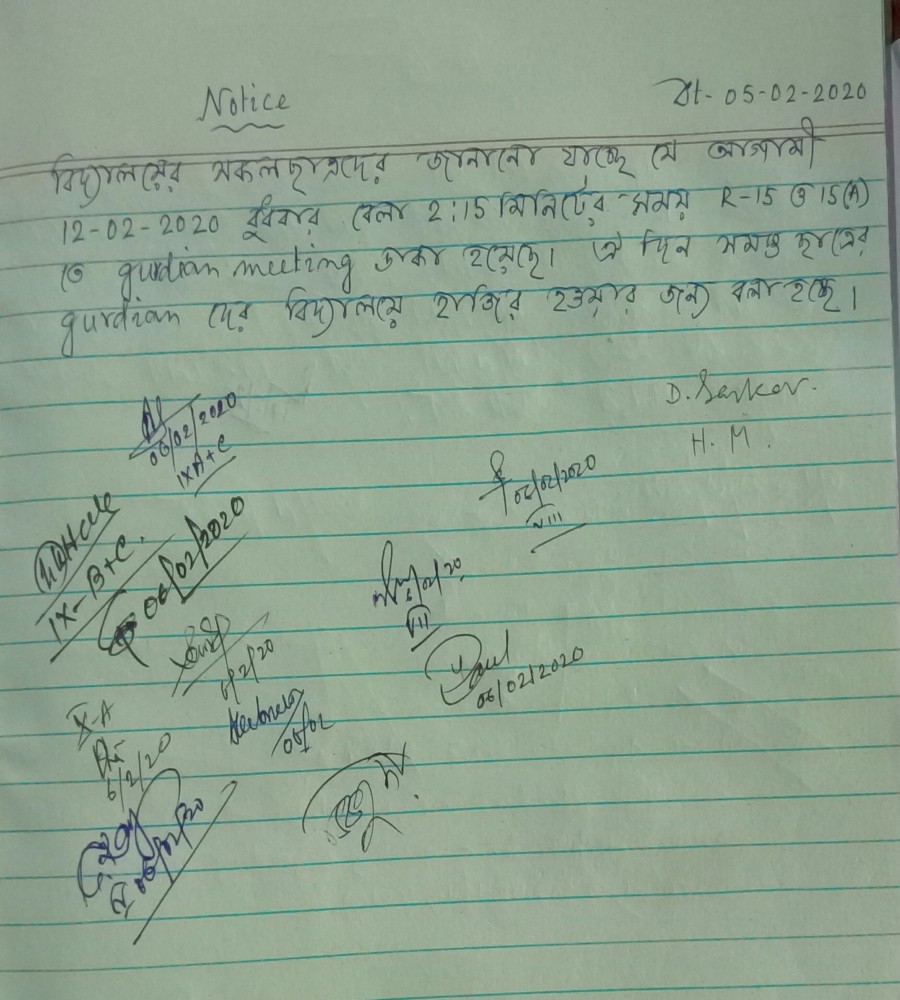 Notice
Dt- 05-02-2020
বিদ্যালয়ের সকল ছাত্রদের জানানো যাচ্ছে যে আগামী
12-02-2020 বুধবার বেলা 2:15 মিনিটের সময় R-15 ও 15(A)
তে gurdian meeting ডাকা হয়েছে। ঐ দিন সমস্ত ছাত্রের
gurdian দের বিদ্যালয়ে হাজির হওয়ার জন্য বলা হচ্ছে।
D. Sarkar.
H. M.
06/02/2020
IX A+C
06/02/2020
VIII
IX- B+C.
06/02/2020
VII
6/2/20
06/02/2020
X-A
6/2/20
06/02
06/02/20